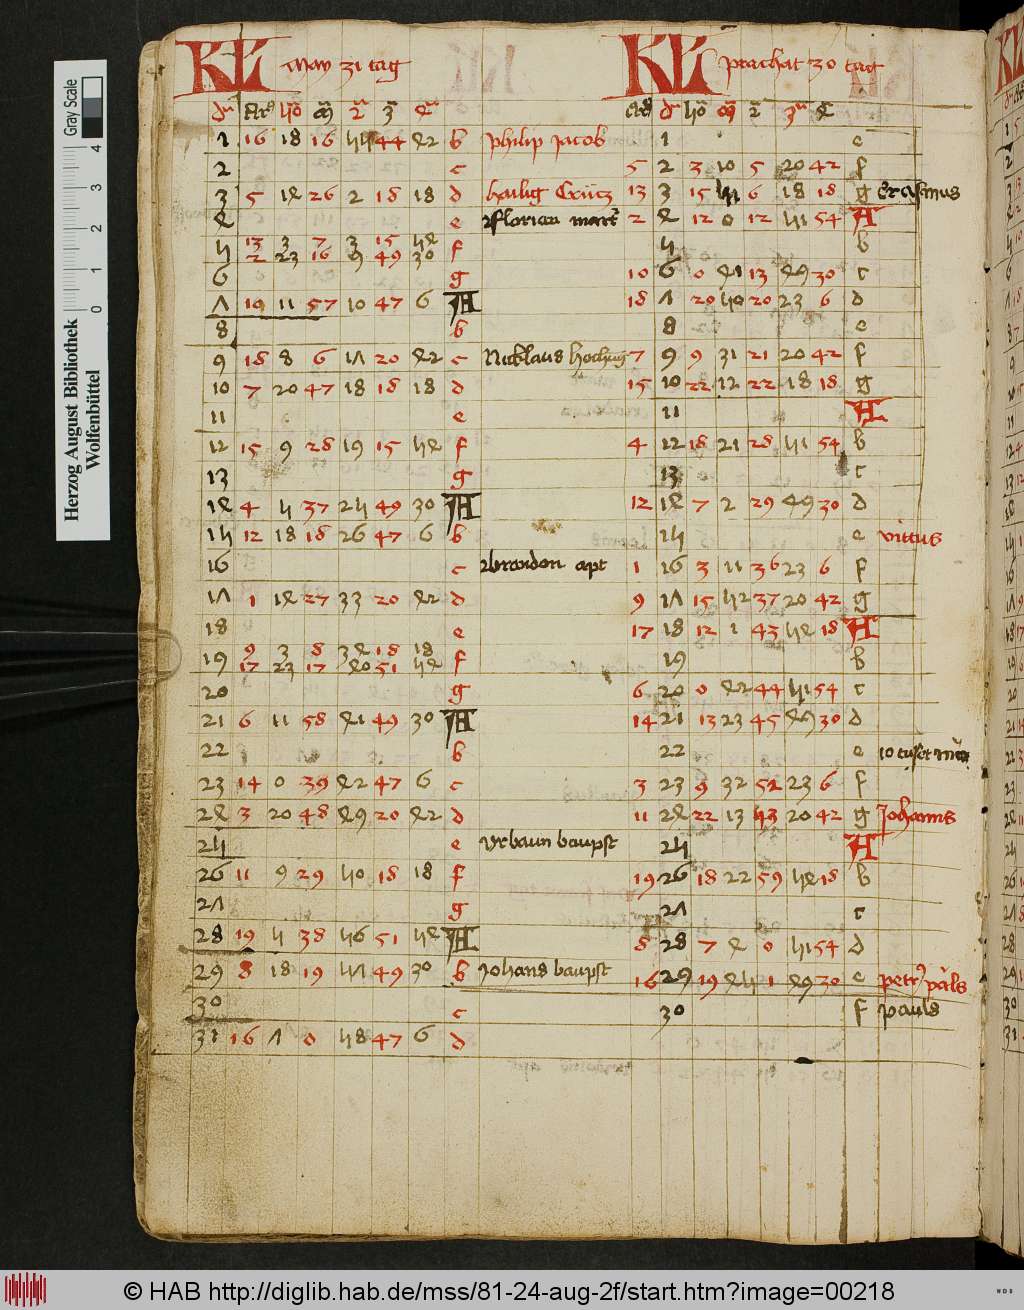 KL May 31 tag
1 16 18 16 55 44 42 b philip Jacob
2 c
3 5 14 26 2 18 18 d heilig Crütz
4 e Florian mart
5 13 3 7 3 15 54 f
2 23 16 9 49 30
6 g
7 10 11 57 10 47 6 A
8 b
9 18 8 6 17 20 42 c Nicklaus hochzig
10 7 20 47 18 18 18 d
11 e
12 15 9 28 19 15 54 f
13 g
14 4 5 37 25 49 30 A
15 12 18 18 26 47 6 b
16 c brandon apt
17 1 14 27 33 20 42 d
18 e
19 9 3 8 34 18 18 f
17 23 17 40 51 54
20 g
21 6 11 58 41 49 30 A
22 b
23 14 0 39 42 47 6 c
24 3 20 48 49 20 42 d
25 e Vrbaun baupst
26 11 9 29 50 18 18 f
27 g
28 19 5 38 56 51 54 A
29 8 18 19 57 49 30 b Johans baupst
30 c
31 16 7 0 58 47 6 d
KL prachat 30 tag
1 e
5 2 3 10 5 20 42 f
13 3 15 51 6 18 18 g Erasmus
2 4 12 0 12 51 54 A
5 b
10 6 0 41 13 49 30 c
18 7 20 50 20 23 6 d
8 e
7 9 9 31 21 20 42 f
15 10 22 12 22 18 18 g
11 A
4 12 18 21 28 51 54 b
13 c
12 14 7 2 29 49 30 d
15 e vittus
1 16 3 11 36 23 6 f
9 17 15 52 37 20 42 g
17 18 12 1 43 54 18 A
19 b
6 20 0 42 44 51 54 c
14 21 13 23 45 49 30 d
22 e
3 23 9 32 52 23 6 f
11 24 22 13 53 20 42 g Johanns
25 A
19 26 18 22 59 54 18 b
27 c
8 28 7 4 0 51 54 d
16 29 19 45 1 49 30 e petr pauls
30 f pauls
Herzog August Bibliothek
Wolfenbüttel
Gray Scale
0 1 2 3 4
© HAB http://diglib.hab.de/mss/81-24-aug-2f/start.htm?image=00218